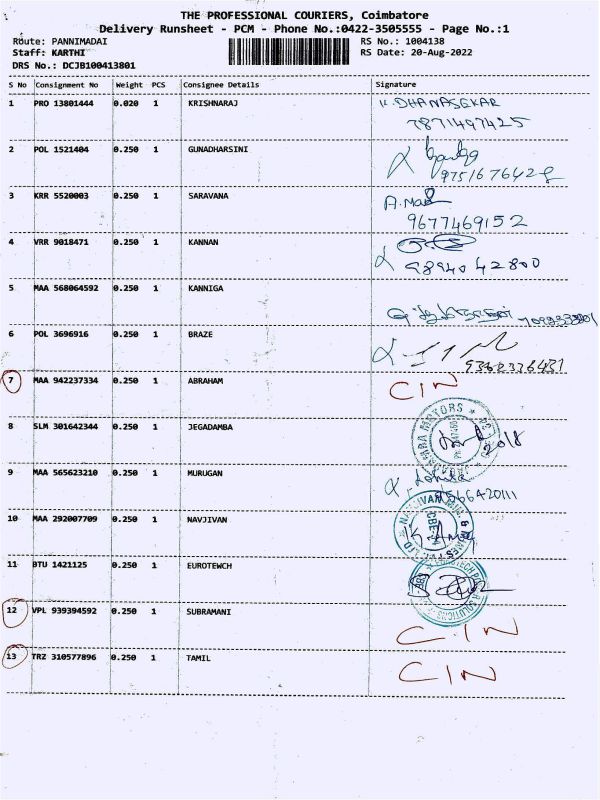 THE PROFESSIONAL COURIERS, Coimbatore
Delivery Runsheet - PCM - Phone No.:0422-3505555 - Page No.:1
Route: PANNIMADAI RS No.: 1004138
Staff: KARTHI RS Date: 20-Aug-2022
DRS No.: DCJB100413801
S No Consignment No Weight PCS Consignee Details Signature
1 PRO 13801444 0.020 1 KRISHNARAJ K. DHANASEKAR
7871497425
2 POL 1521404 0.250 1 GUNADHARSINI
9751676428
3 KRR 5520003 0.250 1 SARAVANA A. Mani
9677469152
4 VRR 9018471 0.250 1 KANNAN
9894042800
5 MAA 568064592 0.250 1 KANNIGA
6 POL 3696916 0.250 1 BRAZE
9360336431
7 MAA 942237334 0.250 1 ABRAHAM CIN
8 SLM 301642344 0.250 1 JEGADAMBA MOTORS
2018
9 MAA 565623210 0.250 1 MURUGAN
9566420111
10 MAA 292007709 0.250 1 NAVJIVAN
11 BTU 1421125 0.250 1 EUROTEWCH
12 VPL 939394592 0.250 1 SUBRAMANI C.IN
13 TRZ 310577896 0.250 1 TAMIL CIN